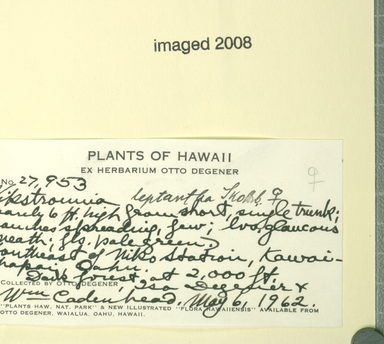 imaged 2008
PLANTS OF HAWAII
EX HERBARIUM OTTO DEGENER
No. 27,953 ♀
ikstroemia leptantha Skottsb. ♀
6 ft. high from short, single trunk;
anches spreading, few; lvs. glaucous
neath; fls. pale green;
outheast of Nike Station, Kawai-
hapai, Oahu.
Dark forest at 2,000 ft.
COLLECTED BY OTTO DEGENER, Isa Degener &
Wm Cadenhead. May 6, 1962.
"PLANTS HAW. NAT. PARK" & NEW ILLUSTRATED "FLORA HAWAIIENSIS" AVAILABLE FROM
OTTO DEGENER, WAIALUA, OAHU, HAWAII.